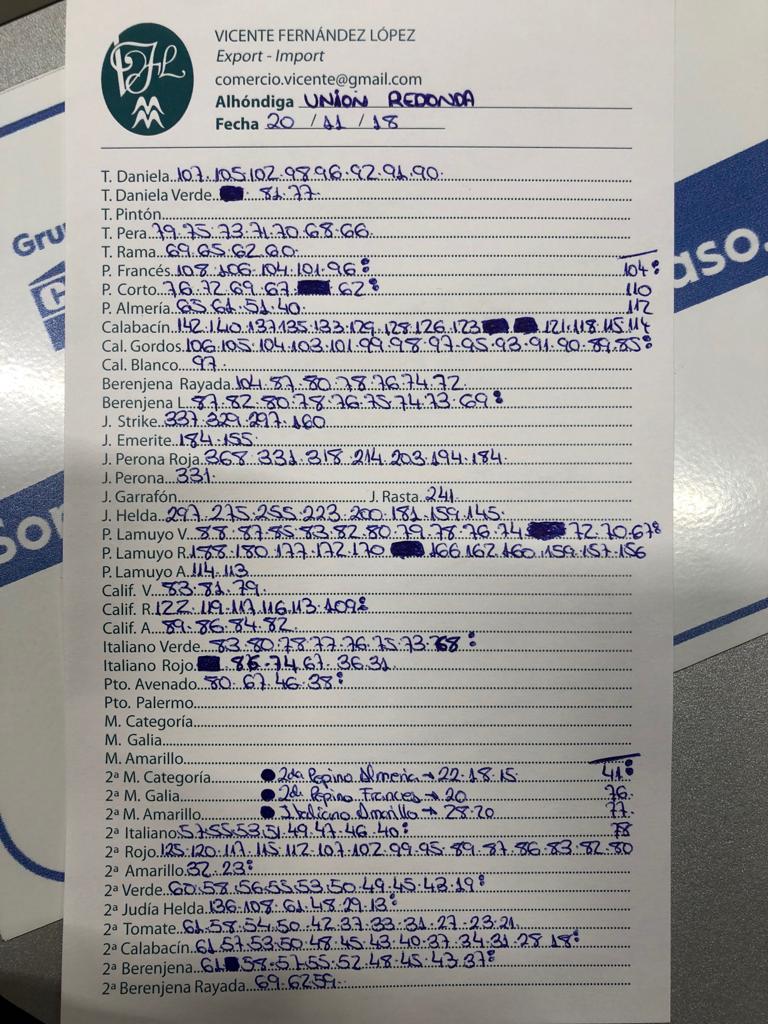 VICENTE FERNÁNDEZ LÓPEZ
Export - Import
comercio.vicente@gmail.com
Alhóndiga UNION REDONDA
Fecha 20 / 11 / 18
T. Daniela 107.105.102.98.96.92.91.90.
T. Daniela Verde 81.77.
T. Pintón
T. Pera 79.75.73.71.70.68.66
T. Rama 69.65.62.60.
P. Francés 108.106.104.101.96 104
P. Corto 76.72.69.67. 62 110
P. Almería 65.61.51.40. 112
Calabacín 142.140.137.135.133.129.128.126.123 121.118.115.114
Cal. Gordos 106.105.104.103.101.99.98.97.95.93.91.90.89.85
Cal. Blanco 97.
Berenjena Rayada 104.87.80.78.76.74.72.
Berenjena L 87.82.80.78.76.75.74.73.69
J. Strike 337.329.297.160
J. Emerite 184.155.
J. Perona Roja 368.331.318.214.203.194.184.
J. Perona 331.
J. Garrafón J. Rasta 241.
J. Helda 297.275.255.223.200.181.159.145.
P. Lamuyo V. 88.87.85.83.82.80.79.78.76.74 72.70.67
P. Lamuyo R. 188.180.177.172.170 166.162.160.159.157.156
P. Lamuyo A. 114.113.
Calif. V. 83.81.79.
Calif. R. 122.119.117.116.113.109
Calif. A. 89.86.84.82.
Italiano Verde 83.80.78.77.76.75.73.68
Italiano Rojo 74.67.36.31
Pto. Avenado 80.67.46.38
Pto. Palermo
M. Categoría
M. Galia
M. Amarillo
2ª M. Categoría 2da Pepino Almeria → 22.18.15. 41
2ª M. Galia 2da Pepino Frances → 20 76
2ª M. Amarillo Italiano Amarillo → 28.20 77
2ª Italiano 57.55.53.51.49.47.46.40 78
2ª Rojo 125.120.117.115.112.107.102.99.95.89.87.86.83.82.80
2ª Amarillo 32.23
2ª Verde 60.58.56.55.53.50.49.45.43.19
2ª Judía Helda 136.108.61.48.29.13
2ª Tomate 61.58.54.50.42.37.33.31.27.23.21
2ª Calabacín 61.57.53.50.48.45.43.40.37.34.31.28.18
2ª Berenjena 61 58.57.55.52.48.45.43.37
2ª Berenjena Rayada 69.62.59.
Gru
aso.
Sor